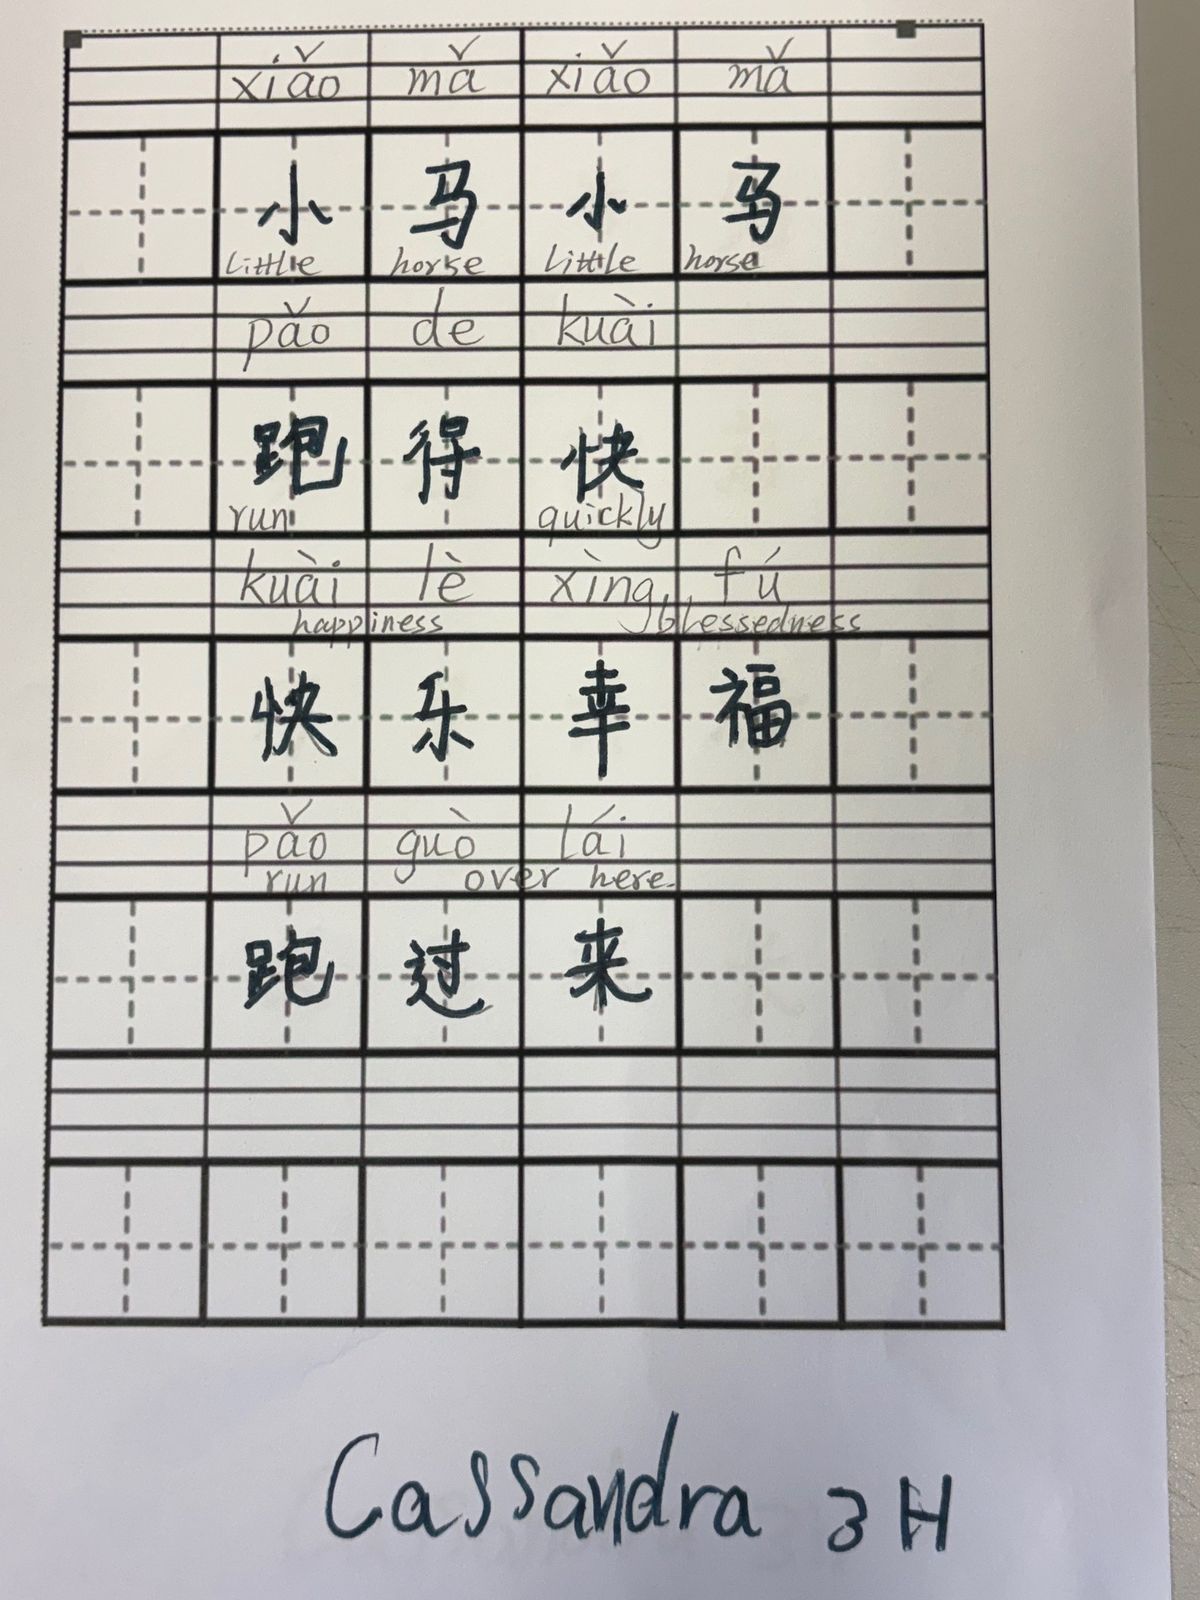 xiǎo mǎ xiǎo mǎ
小 马 小 马
little horse little horse
pǎo de kuài
跑 得 快
run quickly
kuài lè xìng fú
happiness blessedness
快 乐 幸 福
pǎo guò lái
run over here
跑 过 来
Cassandra 3H